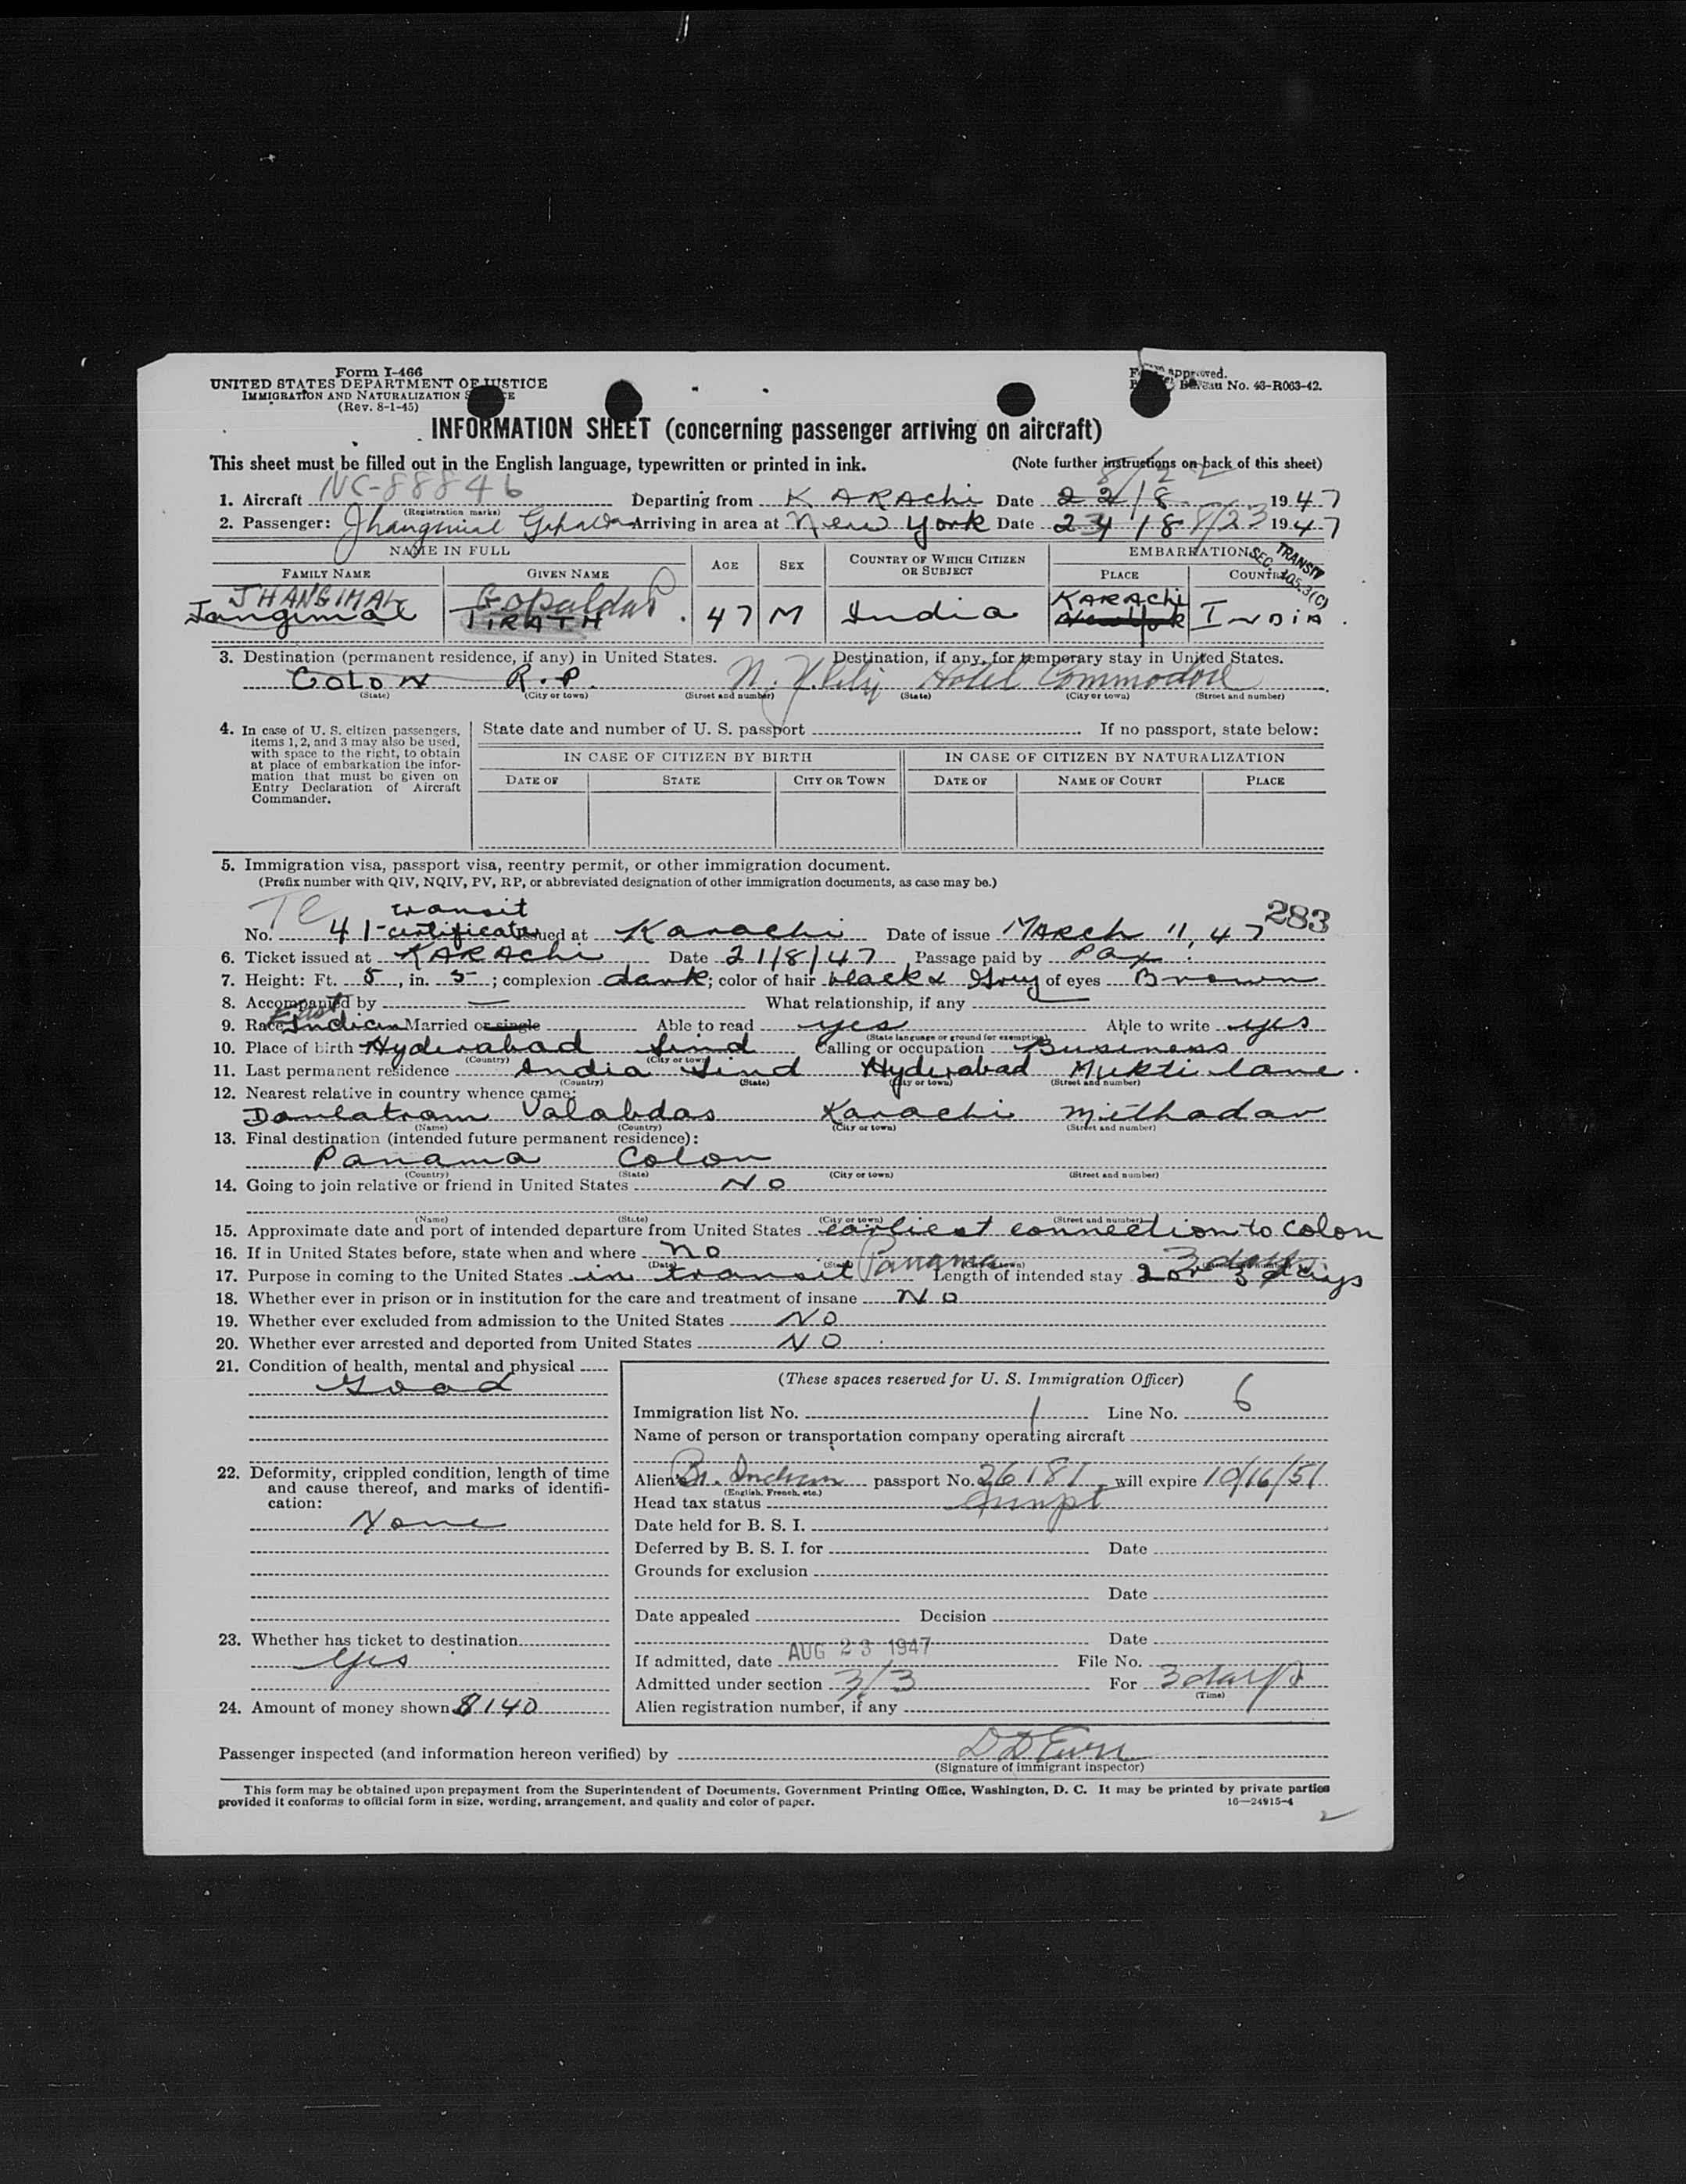 Form I-466
UNITED STATES DEPARTMENT OF JUSTICE
IMMIGRATION AND NATURALIZATION
(Rev. 8-1-45)
approved.
Bureau No. 43-R063-42.
INFORMATION SHEET (concerning passenger arriving on aircraft)
This sheet must be filled out in the English language, typewritten or printed in ink. (Note further instructions on back of this sheet)
8/22
1. Aircraft NC-88846 Departing from KARAchi Date 22/8 1947
(Registration marks)
2. Passenger: Jhangimal Gopaldas Arriving in area at New York Date 24/8 8/23 1947
NAME IN FULL AGE SEX COUNTRY OF WHICH CITIZEN OR SUBJECT EMBARKATION
TRANSIT SEC. 105.3(C)
FAMILY NAME GIVEN NAME PLACE COUNTRY
JHANGIMAL Gopaldas KARAchi
Jangimal TIRATH 47 M India New York INDIA
3. Destination (permanent residence, if any) in United States. Destination, if any, for temporary stay in United States.
COLON R.P. N.Y. City Hotel Commodore
(State) (City or town) (Street and number) (State) (City or town) (Street and number)
4. In case of U. S. citizen passengers, items 1, 2, and 3 may also be used, with space to the right, to obtain at place of embarkation the information that must be given on Entry Declaration of Aircraft Commander.
State date and number of U. S. passport If no passport, state below:
IN CASE OF CITIZEN BY BIRTH IN CASE OF CITIZEN BY NATURALIZATION
DATE OF STATE CITY OR TOWN DATE OF NAME OF COURT PLACE
5. Immigration visa, passport visa, reentry permit, or other immigration document.
(Prefix number with QIV, NQIV, PV, RP, or abbreviated designation of other immigration documents, as case may be.)
TC transit 283
No. 41-certificate Issued at Karachi Date of issue MARch 11, 47
6. Ticket issued at KARAchi Date 21/8/47 Passage paid by Pax
7. Height: Ft. 5, in. 5; complexion dark; color of hair black & Grey of eyes Brown
8. Accompanied by — What relationship, if any —
9. Race East Indian Married or single Able to read yes Able to write yes
(State language or ground for exemption)
10. Place of birth Hyderabad Sind Calling or occupation Business
(Country) (City or town)
11. Last permanent residence India Sind Hyderabad Mukti lane.
(Country) (State) (City or town) (Street and number)
12. Nearest relative in country whence came:
Daulatram Valabdas Karachi Mithadar
(Name) (Country) (City or town) (Street and number)
13. Final destination (intended future permanent residence):
Panama Colon
(Country) (State) (City or town) (Street and number)
14. Going to join relative or friend in United States NO
(Name) (State) (City or town) (Street and number)
15. Approximate date and port of intended departure from United States earliest connection to Colon
16. If in United States before, state when and where No
(Date) (State)
17. Purpose in coming to the United States in transit Panama Length of intended stay 2 or 3 days 3 days
18. Whether ever in prison or in institution for the care and treatment of insane NO
19. Whether ever excluded from admission to the United States NO
20. Whether ever arrested and deported from United States NO
21. Condition of health, mental and physical
Good
(These spaces reserved for U. S. Immigration Officer)
Immigration list No. 1 Line No. 6
Name of person or transportation company operating aircraft
22. Deformity, crippled condition, length of time and cause thereof, and marks of identification:
None
Alien's Br. Indian passport No. 26181, will expire 10/16/51
(English, French, etc.)
Head tax status Exempt
Date held for B. S. I.
Deferred by B. S. I. for Date
Grounds for exclusion
Date
Date appealed Decision
Date
23. Whether has ticket to destination
Yes
If admitted, date AUG 23 1947 File No.
Admitted under section 3/3 For 3 days
(Time)
24. Amount of money shown $140
Alien registration number, if any
Passenger inspected (and information hereon verified) by
(Signature of immigrant inspector)
This form may be obtained upon prepayment from the Superintendent of Documents, Government Printing Office, Washington, D. C. It may be printed by private parties
provided it conforms to official form in size, wording, arrangement, and quality and color of paper. 16—24915-4
2